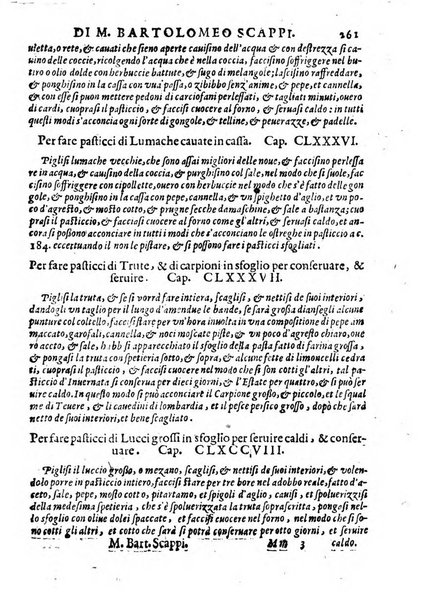 DI M. BARTOLOMEO SCAPPI. 261
uletta, o rete, & cauati che sieno aperte cauisino dell'acqua & con destrezza si ca-
uino delle coccie, ricogliendo l'acqua che è nella coccia, faccisino soffriggere nel bu-
tiro o olio dolce con herbuccie battute, & sugo di melangole; lascino raffreddare,
& ponghisino in cassa con vua passa, o zibibbo senz'anime, & pepe, & cannella,
& con esse si puon mettere pedoni di carciofani perlessati, & tagliati minuti, ouero
di cardi, cuoprasi il pasticcio, & faccisi cuocere al forno, & seruasi caldo: in tutti
questi modi s'acconcia ogni sorte di gongole, & telline, & peuerazze, & padelle.
Per fare pasticci di Lumache cauate in cassa. Cap. CLXXXVI.
Piglisi lumache vecchie, che sono assai migliori delle noue, & faccisino perlessa
re in acqua, & cauati di essa, & purghisino col sale, nel modo che si suole, fac-
cisino soffriggere con cipollette, ouero con herbuccie nel modo che s'è fatto delle gon
gole, & acconcisino in cassa con pepe, cannella, & vn spighetto d'aglio, & vn po-
co d'agresto, & mosto cotto, & prugne secche damaschine, & sale a bastanza; cuo
prasi il pasticcio, & faccisi cuocere al forno, & cotto che sarà, seruasi caldo, et anco-
ra si possono acconciare in tutti i modi che s'acconciano le ostreghe a c.
184. eccettuando il non le pistare, & si possono fare i pasticci sfogliati.
Per fare pasticci di Trute, & di carpioni in sfoglio per conseruare, &
seruire. Cap. CLXXXVII.
Piglisi la truta, & se si vorrà fare intiera, scaglisi, & nettisi de suoi interiori,
dandogli vn taglio per il lungo d'amendue le bande, se sarà grossa diansegli alcune
punture col coltello, faccisi stare per vn'hora involta in vna compositione di pepe am
maccato, garofali, cannella, noci moscate, & sale, & vn poco d'agresto chiaro, ouero
aceto, & habbisi apparecchiato il sfoglio della pasta fatto di farina grossa,
& pongasi la truta con spetieria sotto, & sopra, & alcune fette di limoncelli cedra
ti, cuoprasi il pasticcio, & faccisi cuocere al forno, nel modo che si son cotti gli altri, tal pa
sticcio d'Inuernata si conserua per dieci giorni, & l'Estate per quattro, & si può ser
uire caldo. In questo modo si può acconciare il Carpione grosso, & piccolo, et il lungue
dal di Teuere, & li cauedini di lombardia, et il pesce persico grosso, dapoi che sarà
netto de suoi interiori, et bene scagliato.
Per fare pasticci di Lucci grossi in sfoglio per seruire caldi, & conser-
uare. Cap. CLXCCVIII.
Piglisi il luccio grosso, o mezano, scaglisi, & nettisi de suoi interiori, & volen-
dolo porre in pasticcio, faccisi stare per tre hore nel adobbo reale, fatto d'a-
ceto, sale, pepe, mosto cotto, pitartamo, et spigoli d'aglio, cauisi, et spoluerizzisi
della medesima spetieria, che s'è spoluerizzata la truta soprascritta, pongasi nel-
lo sfoglio con oliue dolci spaccate, et faccisi cuocere nel forno, nel modo che si so-
no cotti gli altri, et cotto che sarà si conserua per otto giorni, et seruasi
M. Bart. Scappi. Mm 3 caldo.